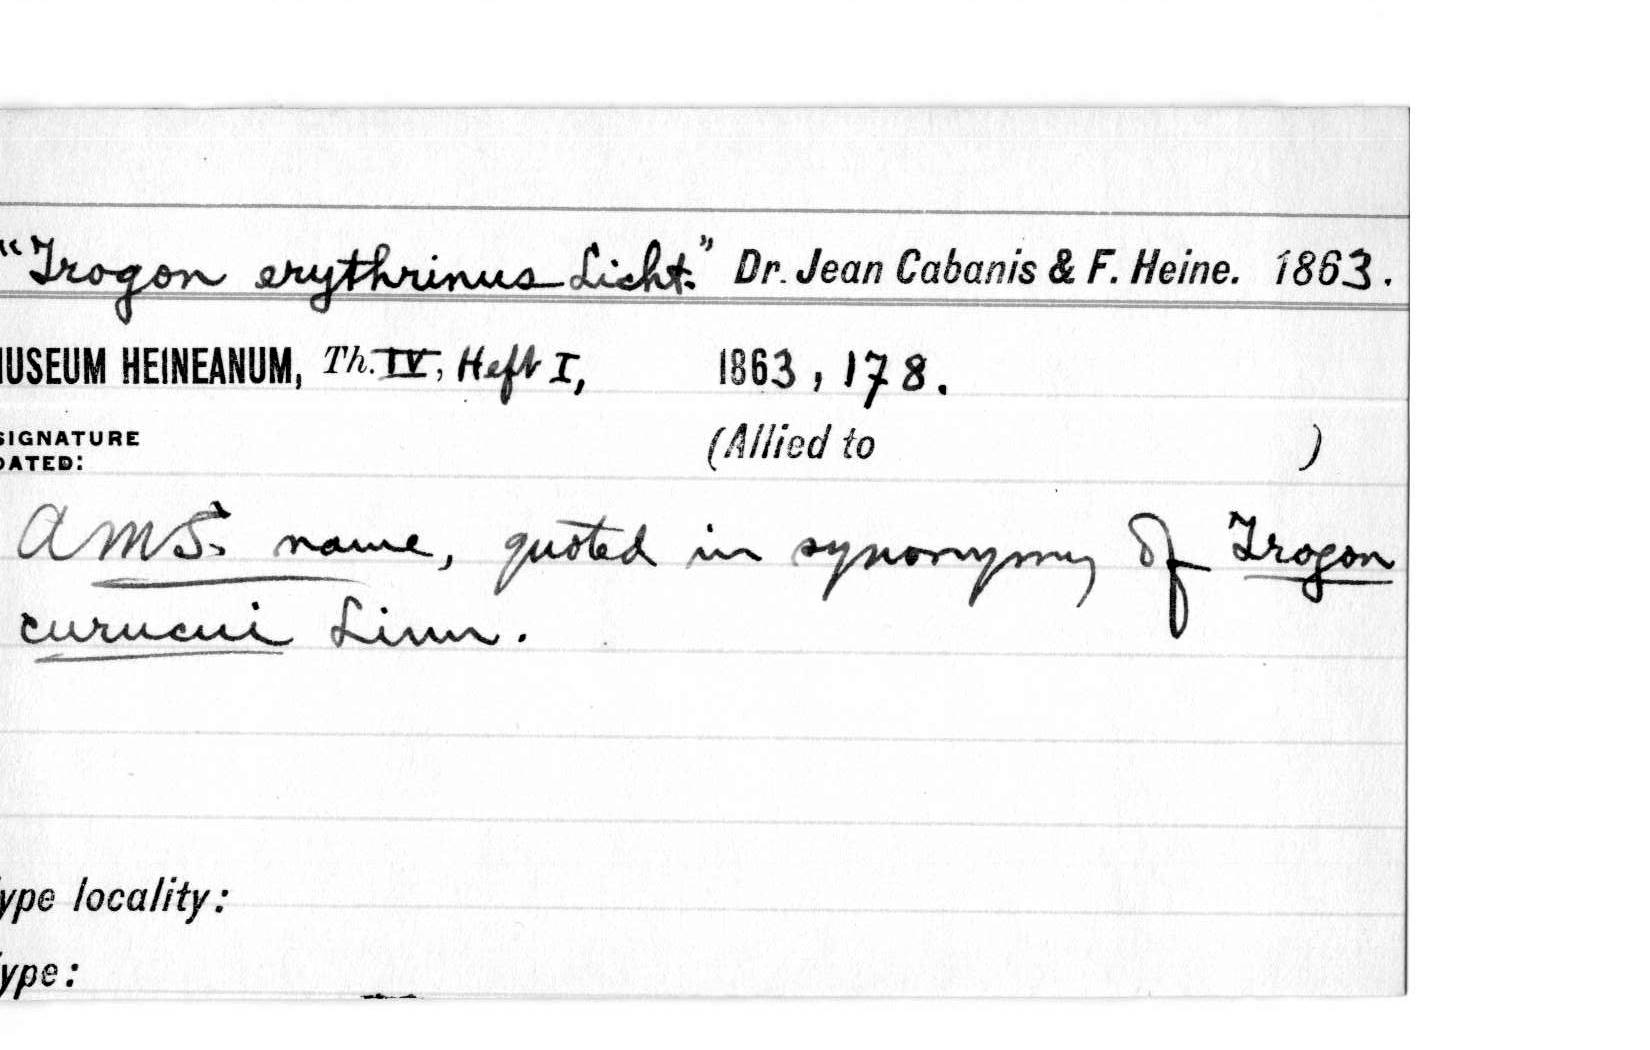 “Trogon erythrinus Licht.” Dr. Jean Cabanis & F. Heine. 1863.
MUSEUM HEINEANUM, Th. IV, Heft I, 1863, 178.
SIGNATURE (Allied to )
DATED:
A MS. name, quoted in synonymy of Trogon
curucui Linn.
Type locality:
Type: